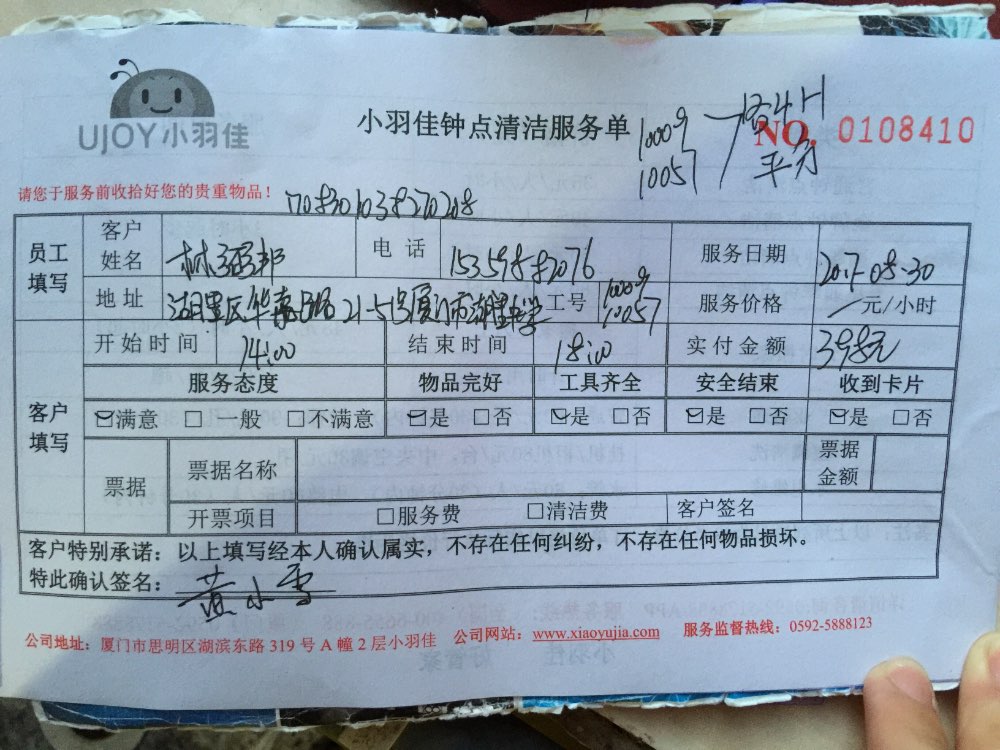 UJOY小羽佳
小羽佳钟点清洁服务单
10009
10057
各4H
平方
NO. 0108410
请您于服务前收拾好您的贵重物品！
员工填写
客户姓名
电话 15359882076
服务日期 2017-08-30
地址
工号 10009 10057
服务价格 元/小时
客户填写
开始时间 14:00
结束时间 18:00
实付金额 398元
服务态度 物品完好 工具齐全 安全结束 收到卡片
☑满意 □一般 □不满意 ☑是 □否 ☑是 □否 ☑是 □否 ☑是 □否
票据 票据名称 票据金额
开票项目 □服务费 □清洁费 客户签名
客户特别承诺：以上填写经本人确认属实，不存在任何纠纷，不存在任何物品损坏。
特此确认签名：黄小雪
公司地址：厦门市思明区湖滨东路 319 号 A 幢 2 层小羽佳 公司网站：www.xiaoyujia.com 服务监督热线：0592-5888123